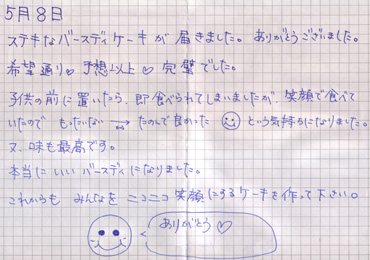 5月8日
ステキなバースディケーキが届きました。ありがとうございました。
希望通り♡予想以上♡完璧でした。
子供の前に置いたら、即食べられてしまいましたが、笑顔で食べて
いたので もったいない → たのんで良かった ☺ という気持ちになりました。
又、味も最高です。
本当にいいバースディになりました。
これからも みんなを ニコニコ笑顔にするケーキを作って下さい。
ありがとう♡